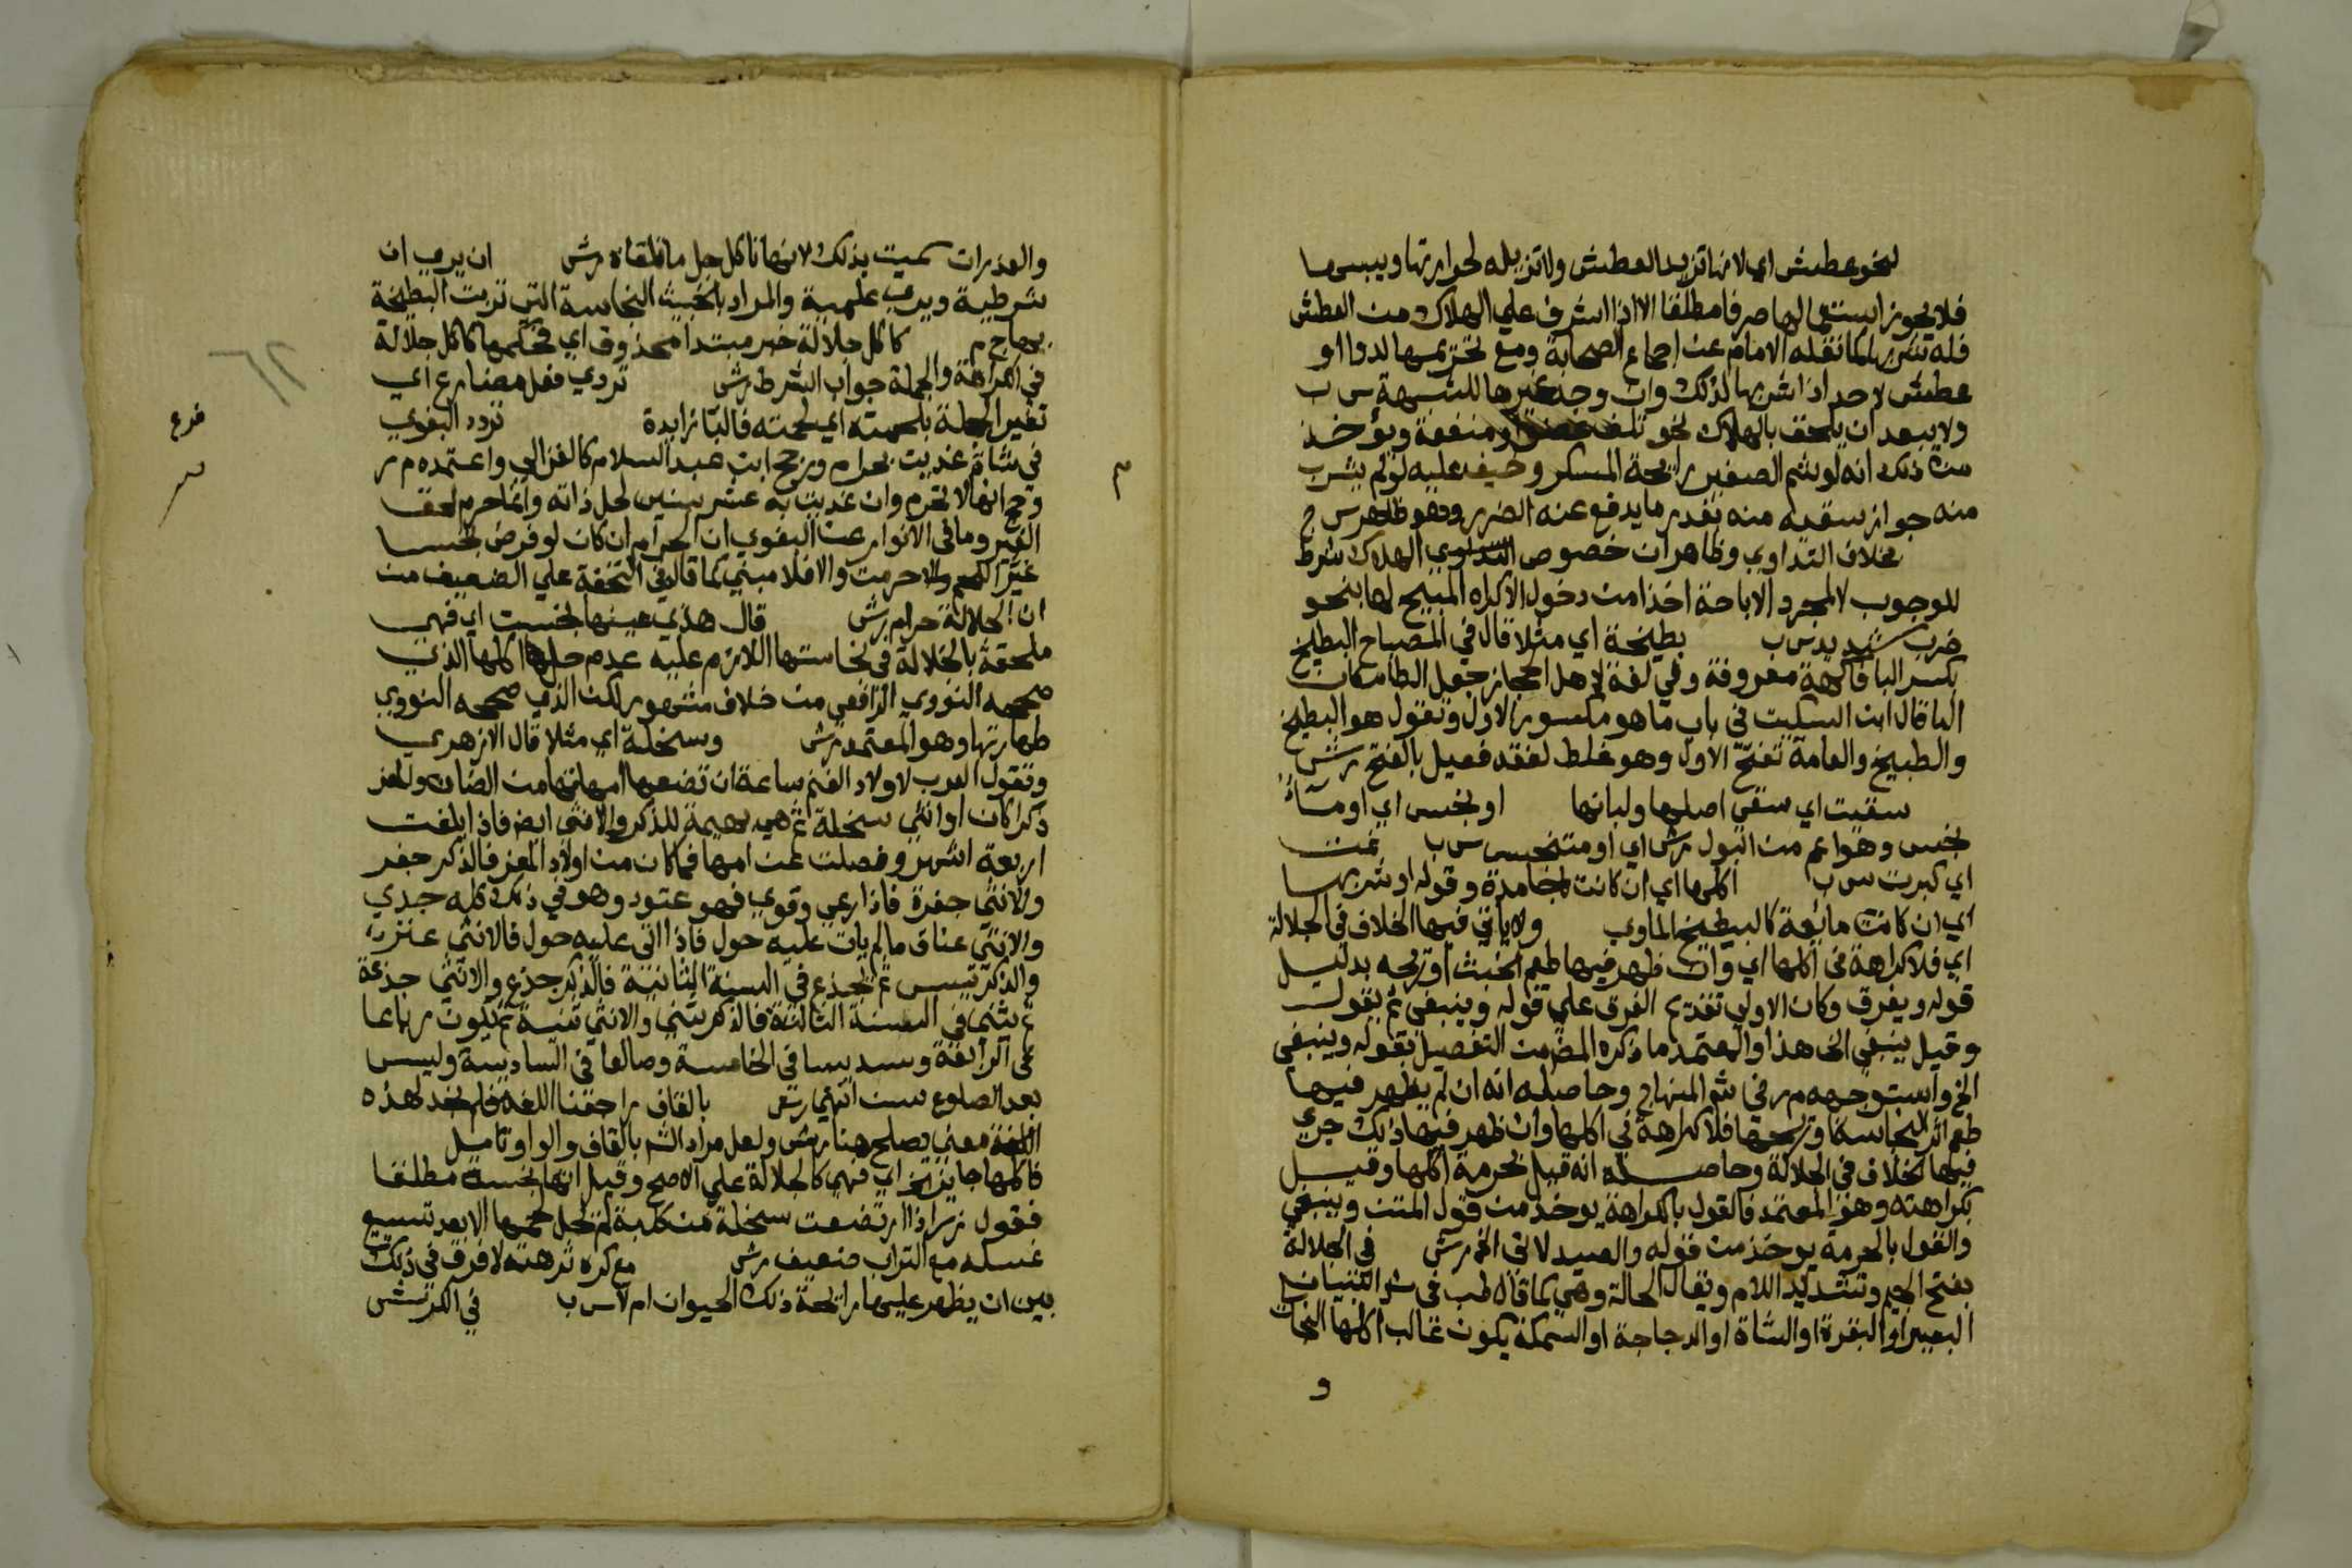 لنحو عطش اي لانها تزيد العطش ولا تزيله لحرارتها ويبسها
فلا يجوز استعمالها صرفا مطلقا الا اذا اشرف علي الهلاك من العطش
فله شربها كما نقله الامام عن اجماع الصحابة ومع تحريمها لدوا او
عطش لا حد اذا شربها لذلك وان وجد غيرها للشبهة س ب
ولا يبعد ان يلحق بالهلاك نحو تلف عضو او منفعة ويؤخذ
من ذلك انه لو شم الصغير رائحة المسكر وخيف عليه لو لم يشرب
منه جواز سقيه منه بقدر ما يدفع عنه الضرر وهو ظاهر س ج
بخلاف التداوي وظاهر ان خصوص الهلاك شرط
للوجوب لا لمجرد الاباحة اخذا من دخول الاكراه المبيح لها بنحو
ضرب شديد س ب بطيخة اي مثلا قال في المصباح البطيخ
بكسر البا فاكهة معروفة وفي لغة لاهل الحجاز جعل الطا مكان
البا قال ابن السكيت في باب ما هو مكسور الاول وتقول هو البطيخ
والطبيخ والعامة تفتح الاول وهو غلط لفقد فعيل بالفتح رش
سقيت اي سقي اصلها ولبانها او بنجس اي او مشاة
بنجس وهو اعم من البول رش اي او متنجس س ب نمت
اي كبرت س ب اكلها اي ان كانت جامدة وقوله او شربها
اي ان كانت مائعة كالبطيخ الماوي ولا ياتي فيها الخلاف في الجلالة
اي فلا كراهة في اكلها اي وان ظهر فيها طعم الخبث او ريحه بدليل
قوله ويفرق وكان الاولي تقديم الفرق علي قوله وينبغي ثم يقول
وقيل ينبغي الخ هذا والمعتمد ما ذكره المص من التفصيل بقوله وينبغي
الخ واستوجهه م ر في شو المنهاج وحاصله انه ان لم يظهر فيها
طعم اثر النجاسة وريحها فلا كراهة في اكلها وان ظهر فيها ذلك جري
فيها الخلاف في الجلالة وحاصله انه قيل بحرمة اكلها وقيل
بكراهته وهو المعتمد فالقول بالكراهة يوخذ من قول المتن وينبغي
والقول بالحرمة يوخذ من قوله والصيد لاتي الخ رش في الجلالة
بفتح الجيم وتشديد اللام ويقال الجالة وهي كما قاله ط ب في شو التنبيه
البعير او البقرة او الشاة او الدجاجة او السمكة يكون غالب اكلها النجاسات
و
والعذرات سميت بذلك لانها تاكل جل ما تلقاه رش ان يري ان
شرطية ويري علمية والمراد بالخبث النجاسة التي تربت البطيخة
بها ج م كاكل جلالة خبر مبتدا محذوف اي فحكمها كاكل جلالة
في الكراهة والجملة جواب الشرط رش تردي فعل مضارع اي
تغير الجملة بلحمته اي لحمته فالبا زايدة تردد البغوي
في شاة غذيت بحرام ورجح ابن عبد السلام كالغزالي واعتمده م ر
وحج انها لا تحرم وان غذيت به عشر سنين لحل ذاته وانما حرم لحق
الغير وما في الانوار عن البغوي ان الحرام ان كان لو فرض نجسا
غير اللحم والا حرمت والا فلا مبني كما قاله في التحفة علي الضعيف من
ان الجلالة حرام رش قال هذي عينها نجست اي فهي
ملحقة بالجلالة في نجاستها اللازم عليه عدم حل اكلها الذي
صححه النووي الرافعي من خلاف مشهور لكن الذي صححه النووي
طهارتها وهو المعتمد رش وسخلة اي مثلا قال الازهري
وتقول العرب لاولاد الغنم ساعة ان تضعها امهاتها من الضان والمعز
ذكرا كان او انثي سخلة ثم هي بهيمة للذكر والانثي ايضا فاذا بلغت
اربعة اشهر وفصلت عن امها فما كان من اولاد المعز فالذكر جفر
والانثي جفرة فاذا رعي وقوي فهو عتود وهو في ذلك كله جدي
والانثي عناق ما لم يات عليه حول فاذا اتي عليه حول فالانثي عنز
والذكر تيس ثم يجذع في السنة الثانية فالذكر جذع والانثي جذعة
ثم يثني في السنة الثالثة فالذكر ثني والانثي ثنية ثم يكون رباعا
في الرابعة وسديسا في الخامسة وصالغا في السادسة وليس
بعد الصلوغ سن انتهي رش بالقاف راجعنا اللغة فلم نجد لهذه
اللغة معني يصلح هنا رش ولعل مراد الش بالقاف والواو تامل
فاكلها جايز الخ اي فهي كالجلالة علي الاصح وقيل انها نجسة مطلقا
فقول زي اذا ارتضعت سخلة من كلبة لم يحل لحمها الا بعد تسبيع
غسله مع التراب ضعيف رش مع كره تزهته لا فرق في ذلك
بين ان يظهر عليها رائحة ذلك الحيوان ام لا س ب في الكرش
فرع